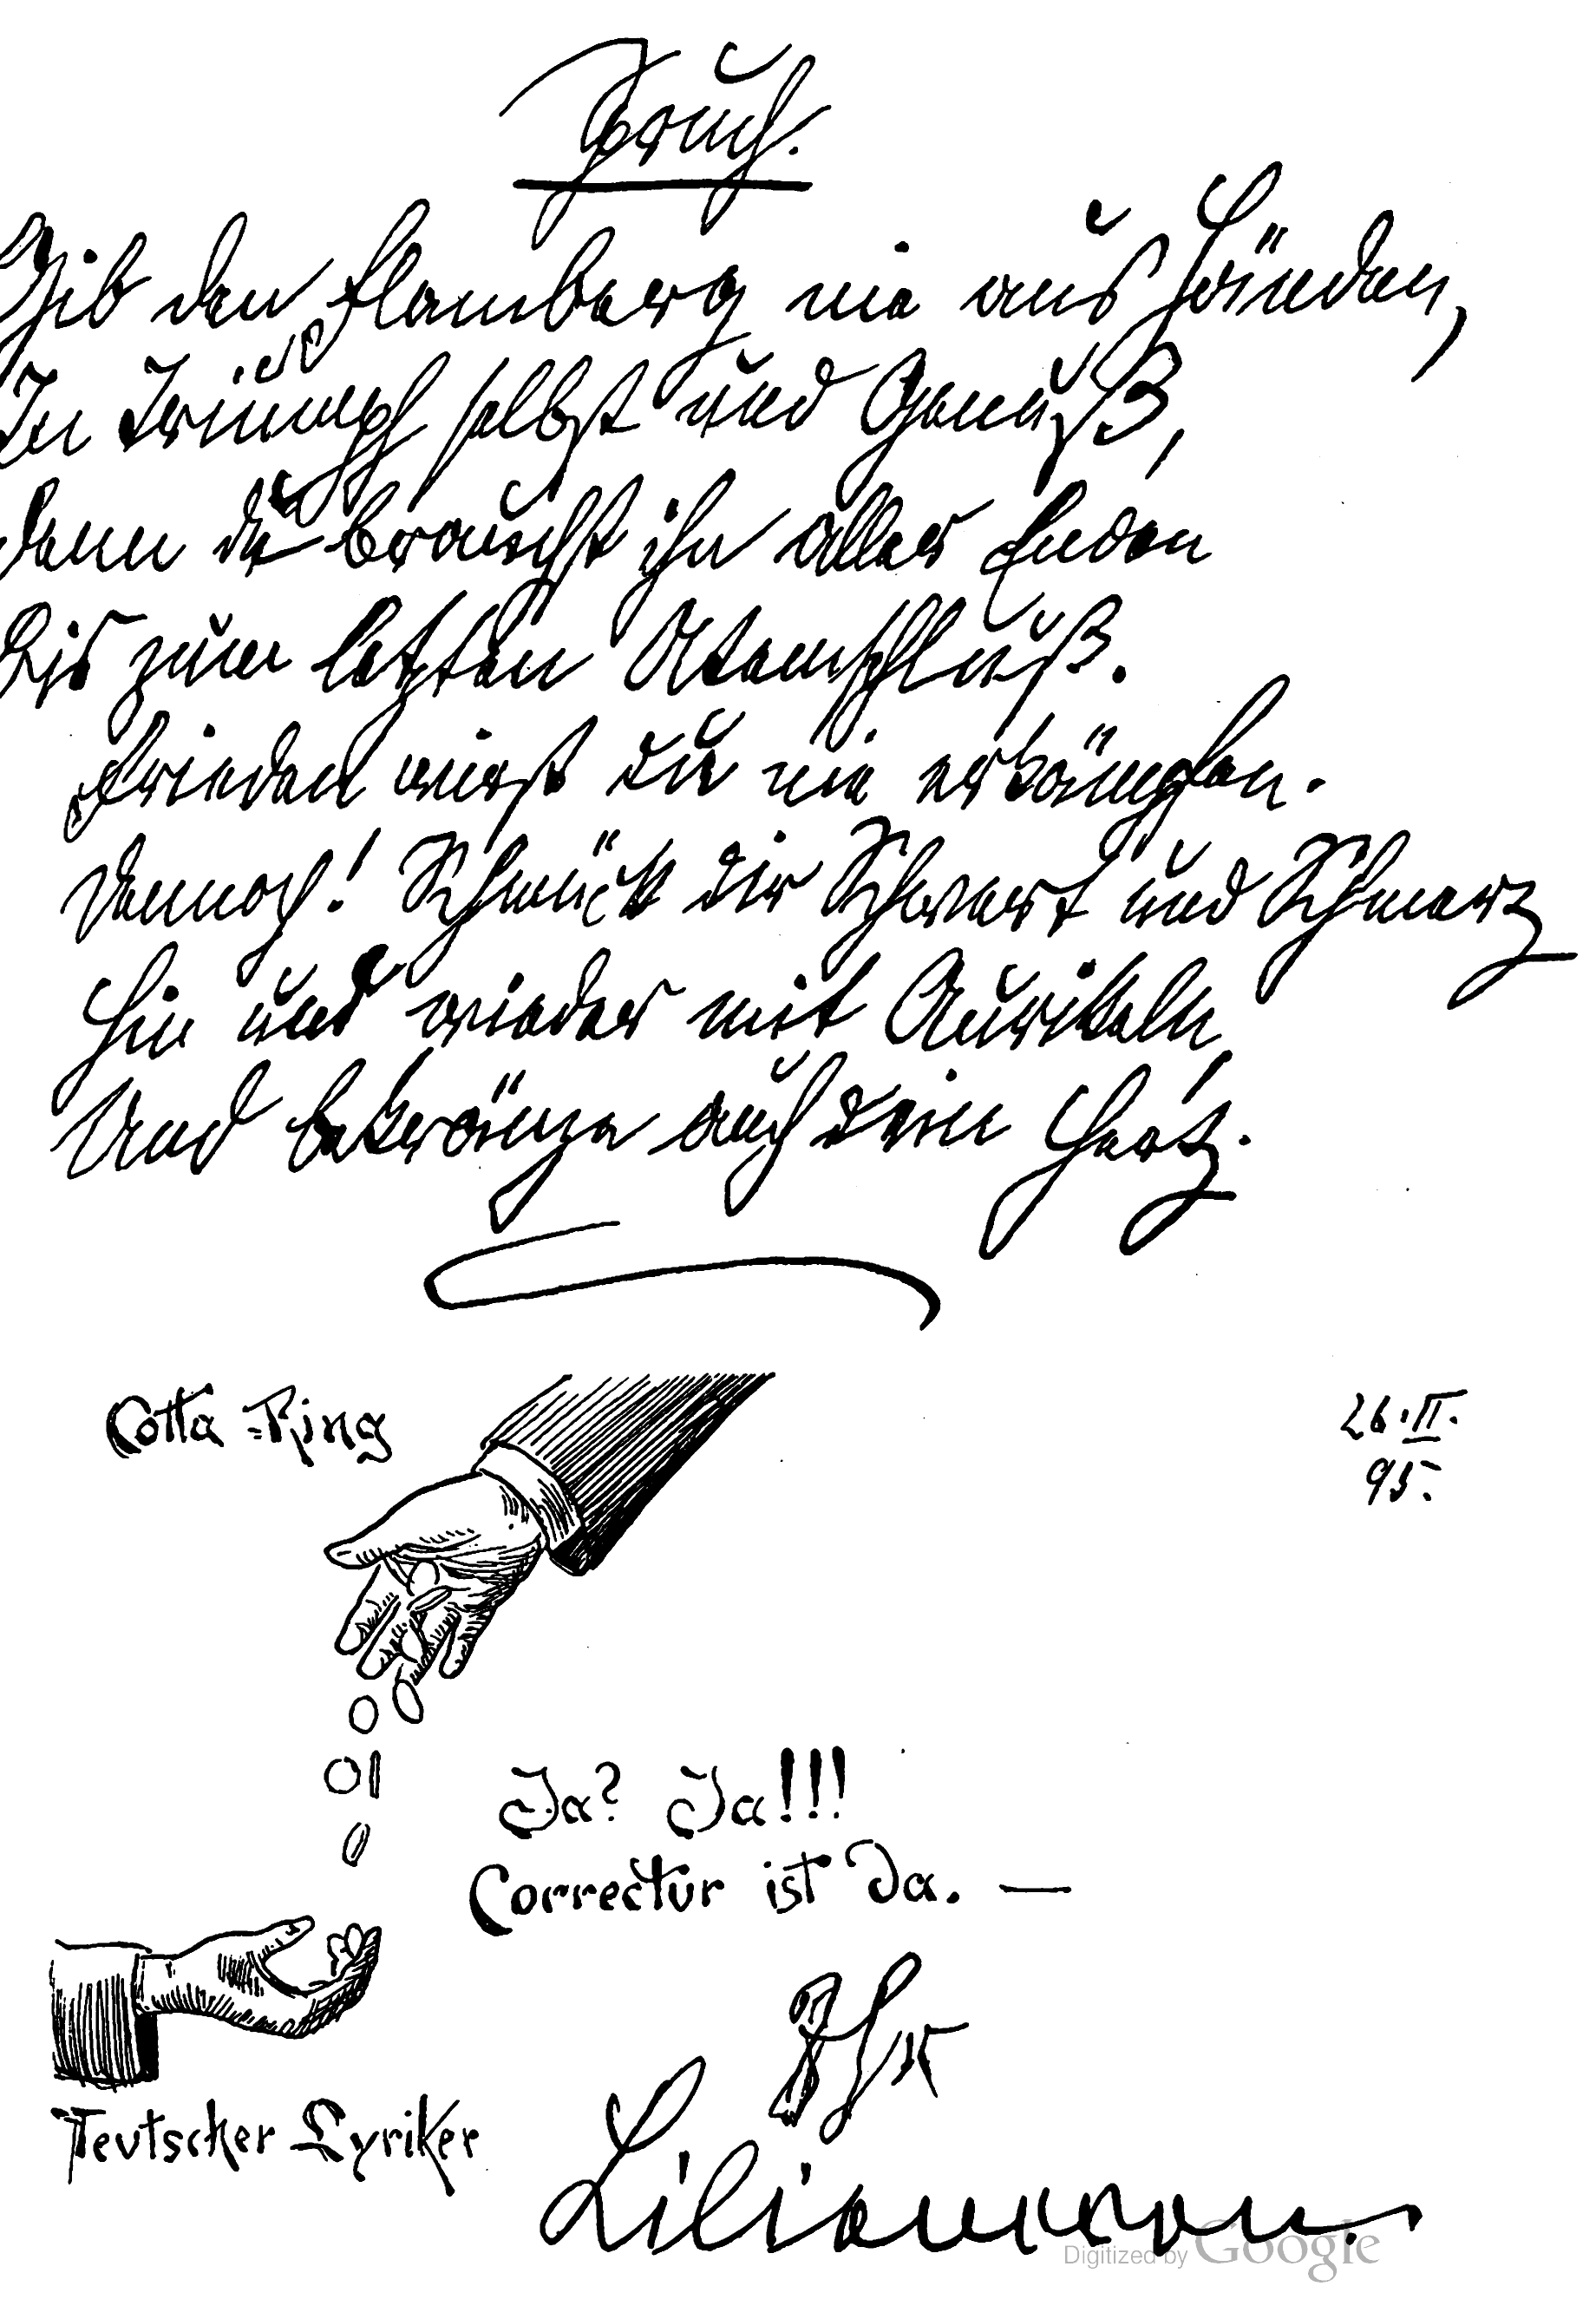 Spruch.
Gib den Flamberg nie aus Händen,
In Triumph selbst und Genuß,
Denn du brauchst ihn aller Enden
Bis zum letzten Atemschluß.
Frieden wirst du nie erkämpfen.
Dennoch! Schmück dir Schwert und Schmerz
Hin und wieder mit Aurikeln,
Und bekränze auch dein Herz.
Cotta-Ring
26.II.
95.
Ja? Ja!!!
Correctur ist da. —
Teutscher Lyriker
Ihr
Liliencron.
Digitized by Google